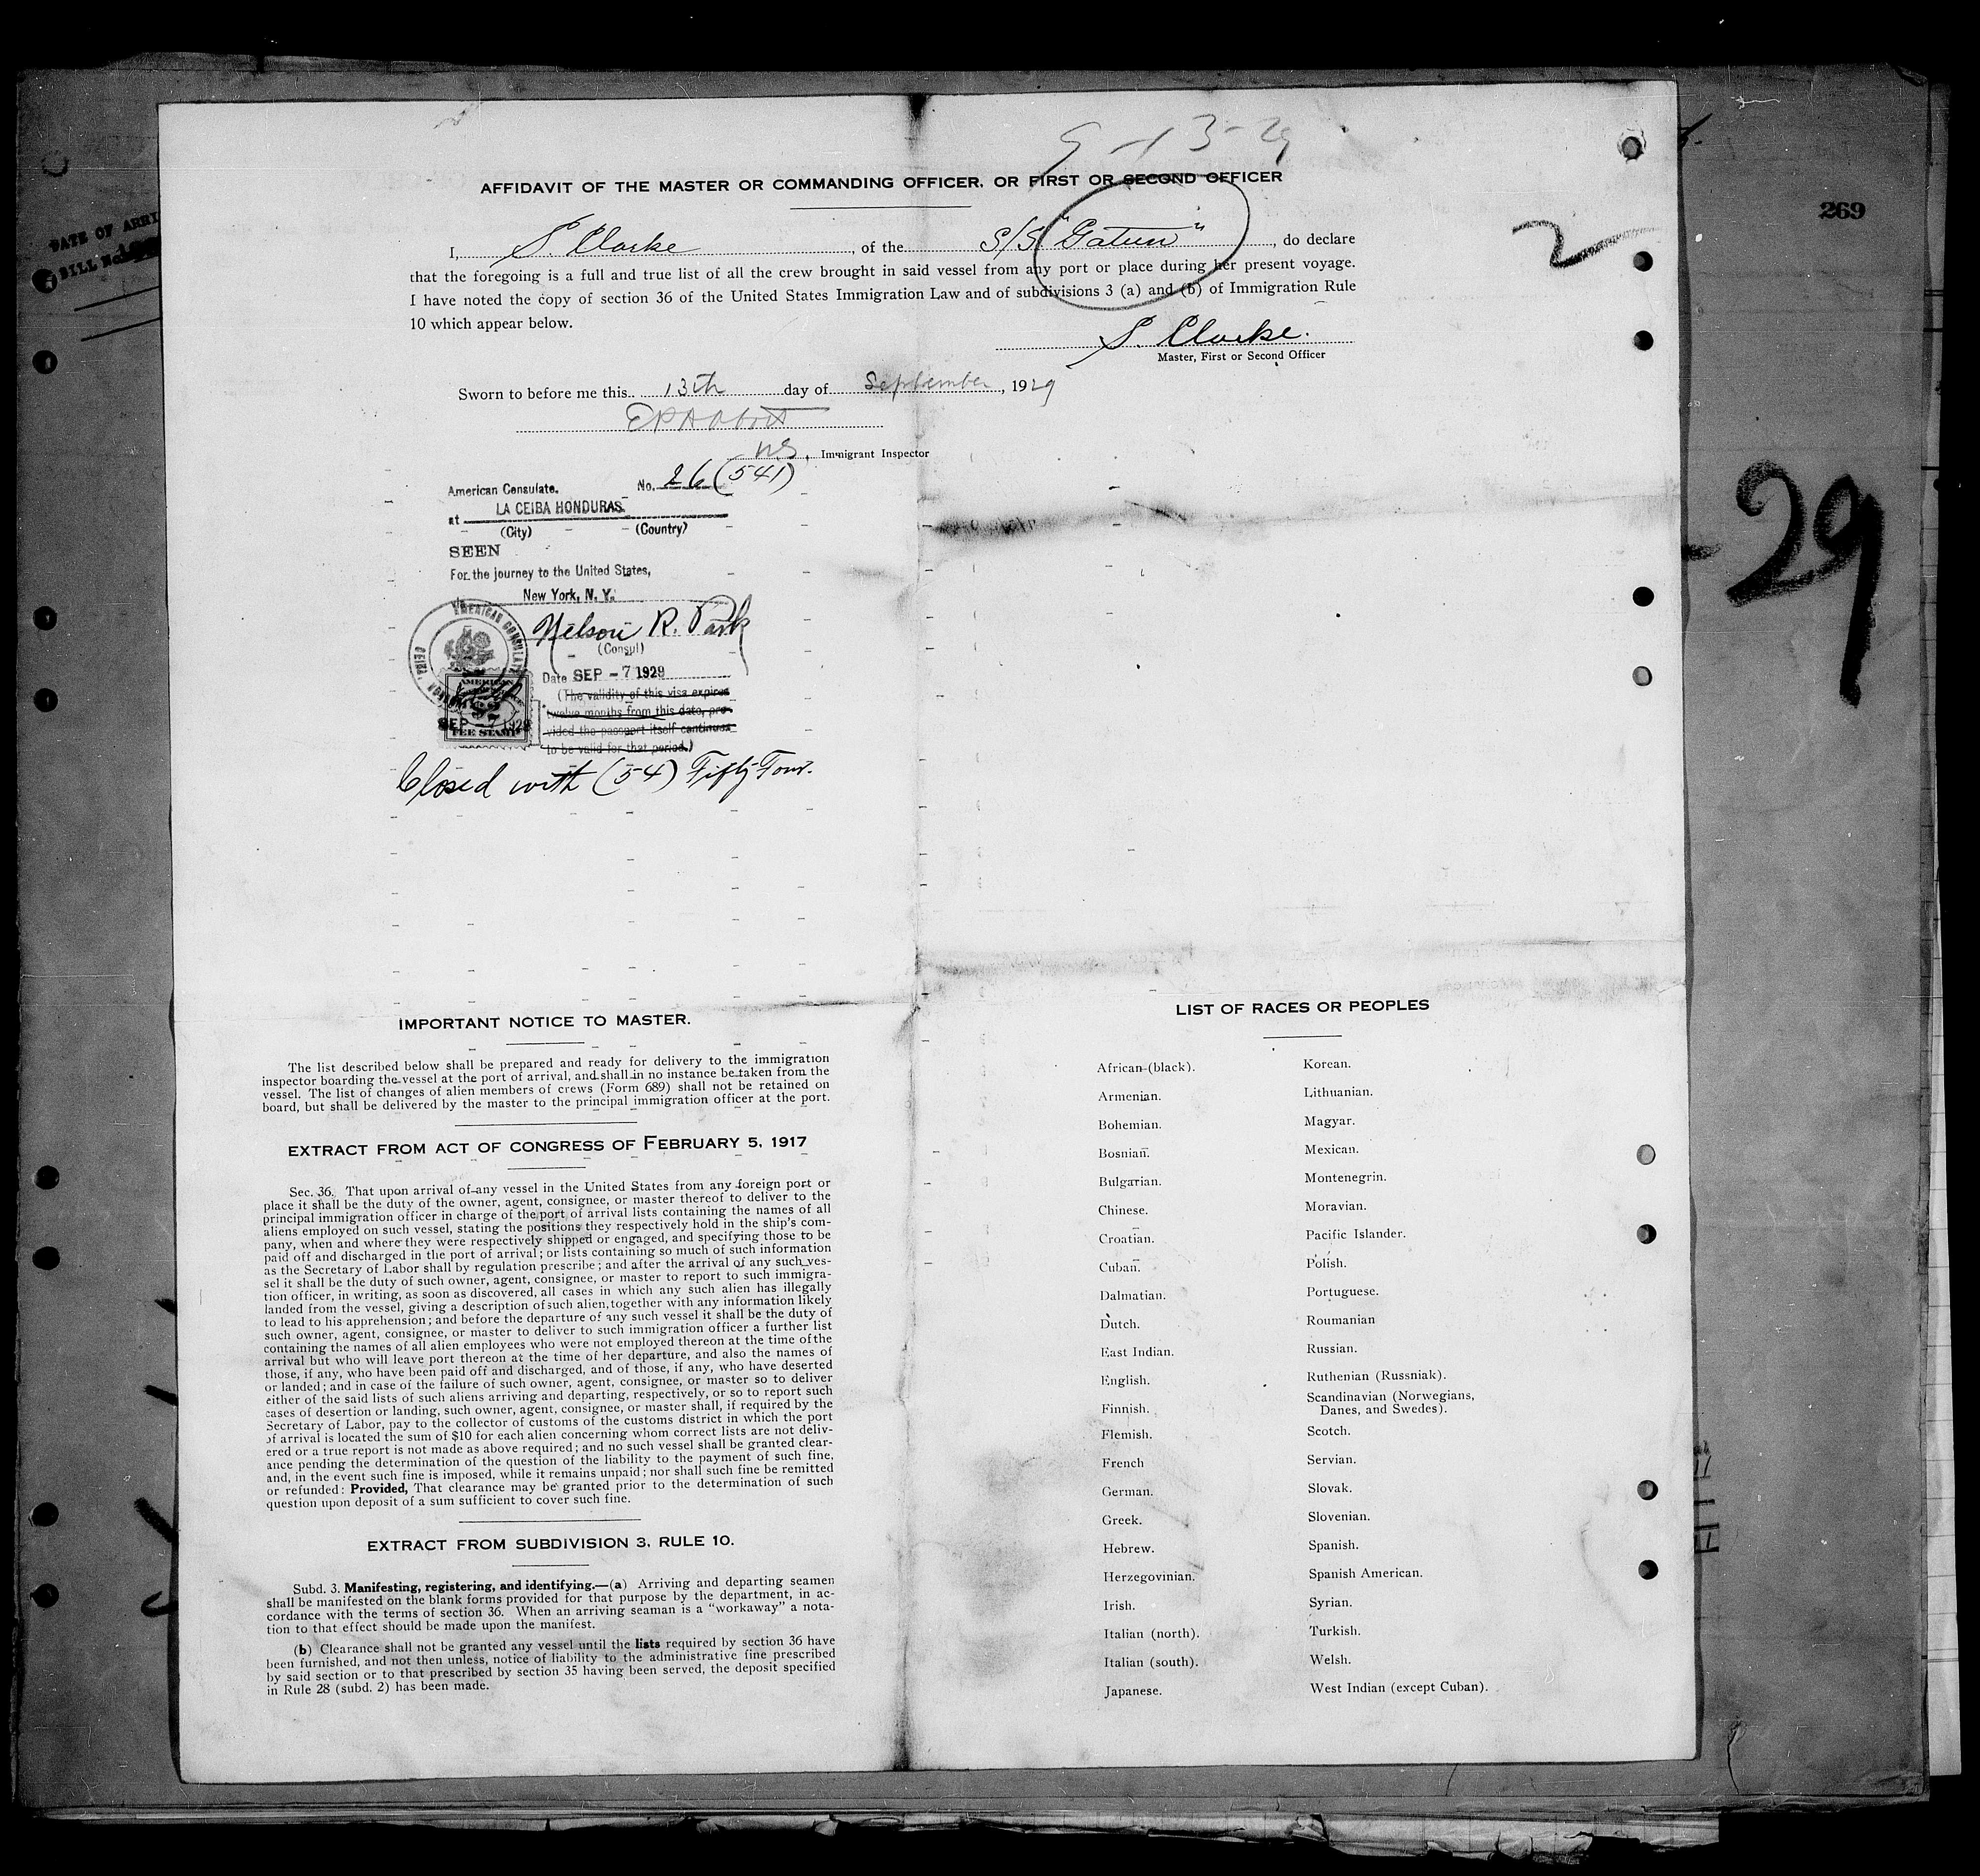 9-13-29
AFFIDAVIT OF THE MASTER OR COMMANDING OFFICER, OR FIRST OR SECOND OFFICER
I, S. Clarke, of the S/S "Gatun", do declare
that the foregoing is a full and true list of all the crew brought in said vessel from any port or place during her present voyage.
I have noted the copy of section 36 of the United States Immigration Law and of subdivisions 3 (a) and (b) of Immigration Rule
10 which appear below.
S. Clarke.
Master, First or Second Officer
Sworn to before me this 13th day of September, 1929
EPAbbott
U.S. Immigrant Inspector
American Consulate. No. 26 (541)
at LA CEIBA HONDURAS.
(City) (Country)
SEEN
For the journey to the United States,
New York, N. Y.
Nelson R. Park
(Consul)
Date SEP - 7 1929
(The validity of this visa expires
twelve months from this date, pro-
vided the passport itself continues
to be valid for that period.)
AMERICAN CONSULATE
AMERICAN
SEP - 7 1929
FEE STAMP
Closed with (54) Fifty Four.
2
269
29
DATE OF ARRI
BILL No.
IMPORTANT NOTICE TO MASTER.
The list described below shall be prepared and ready for delivery to the immigration
inspector boarding the vessel at the port of arrival, and shall in no instance be taken from the
vessel. The list of changes of alien members of crews (Form 689) shall not be retained on
board, but shall be delivered by the master to the principal immigration officer at the port.
EXTRACT FROM ACT OF CONGRESS OF FEBRUARY 5, 1917
Sec. 36. That upon arrival of any vessel in the United States from any foreign port or
place it shall be the duty of the owner, agent, consignee, or master thereof to deliver to the
principal immigration officer in charge of the port of arrival lists containing the names of all
aliens employed on such vessel, stating the positions they respectively hold in the ship's com-
pany, when and where they were respectively shipped or engaged, and specifying those to be
paid off and discharged in the port of arrival; or lists containing so much of such information
as the Secretary of Labor shall by regulation prescribe; and after the arrival of any such ves-
sel it shall be the duty of such owner, agent, consignee, or master to report to such immigra-
tion officer, in writing, as soon as discovered, all cases in which any such alien has illegally
landed from the vessel, giving a description of such alien, together with any information likely
to lead to his apprehension; and before the departure of any such vessel it shall be the duty of
such owner, agent, consignee, or master to deliver to such immigration officer a further list
containing the names of all alien employees who were not employed thereon at the time of the
arrival but who will leave port thereon at the time of her departure, and also the names of
those, if any, who have been paid off and discharged, and of those, if any, who have deserted
or landed; and in case of the failure of such owner, agent, consignee, or master so to deliver
either of the said lists of such aliens arriving and departing, respectively, or so to report such
cases of desertion or landing, such owner, agent, consignee, or master shall, if required by the
Secretary of Labor, pay to the collector of customs of the customs district in which the port
of arrival is located the sum of $10 for each alien concerning whom correct lists are not deliv-
ered or a true report is not made as above required; and no such vessel shall be granted clear-
ance pending the determination of the question of the liability to the payment of such fine,
and, in the event such fine is imposed, while it remains unpaid; nor shall such fine be remitted
or refunded: Provided, That clearance may be granted prior to the determination of such
question upon deposit of a sum sufficient to cover such fine.
EXTRACT FROM SUBDIVISION 3, RULE 10.
Subd. 3. Manifesting, registering, and identifying.—(a) Arriving and departing seamen
shall be manifested on the blank forms provided for that purpose by the department, in ac-
cordance with the terms of section 36. When an arriving seaman is a "workaway" a nota-
tion to that effect should be made upon the manifest.
(b) Clearance shall not be granted any vessel until the lists required by section 36 have
been furnished, and not then unless, notice of liability to the administrative fine prescribed
by said section or to that prescribed by section 35 having been served, the deposit specified
in Rule 28 (subd. 2) has been made.
LIST OF RACES OR PEOPLES
African (black).
Armenian.
Bohemian.
Bosnian.
Bulgarian.
Chinese.
Croatian.
Cuban.
Dalmatian.
Dutch.
East Indian.
English.
Finnish.
Flemish.
French
German.
Greek.
Hebrew.
Herzegovinian.
Irish.
Italian (north).
Italian (south).
Japanese.
Korean.
Lithuanian.
Magyar.
Mexican.
Montenegrin.
Moravian.
Pacific Islander.
Polish.
Portuguese.
Roumanian
Russian.
Ruthenian (Russniak).
Scandinavian (Norwegians,
Danes, and Swedes).
Scotch.
Servian.
Slovak.
Slovenian.
Spanish.
Spanish American.
Syrian.
Turkish.
Welsh.
West Indian (except Cuban).